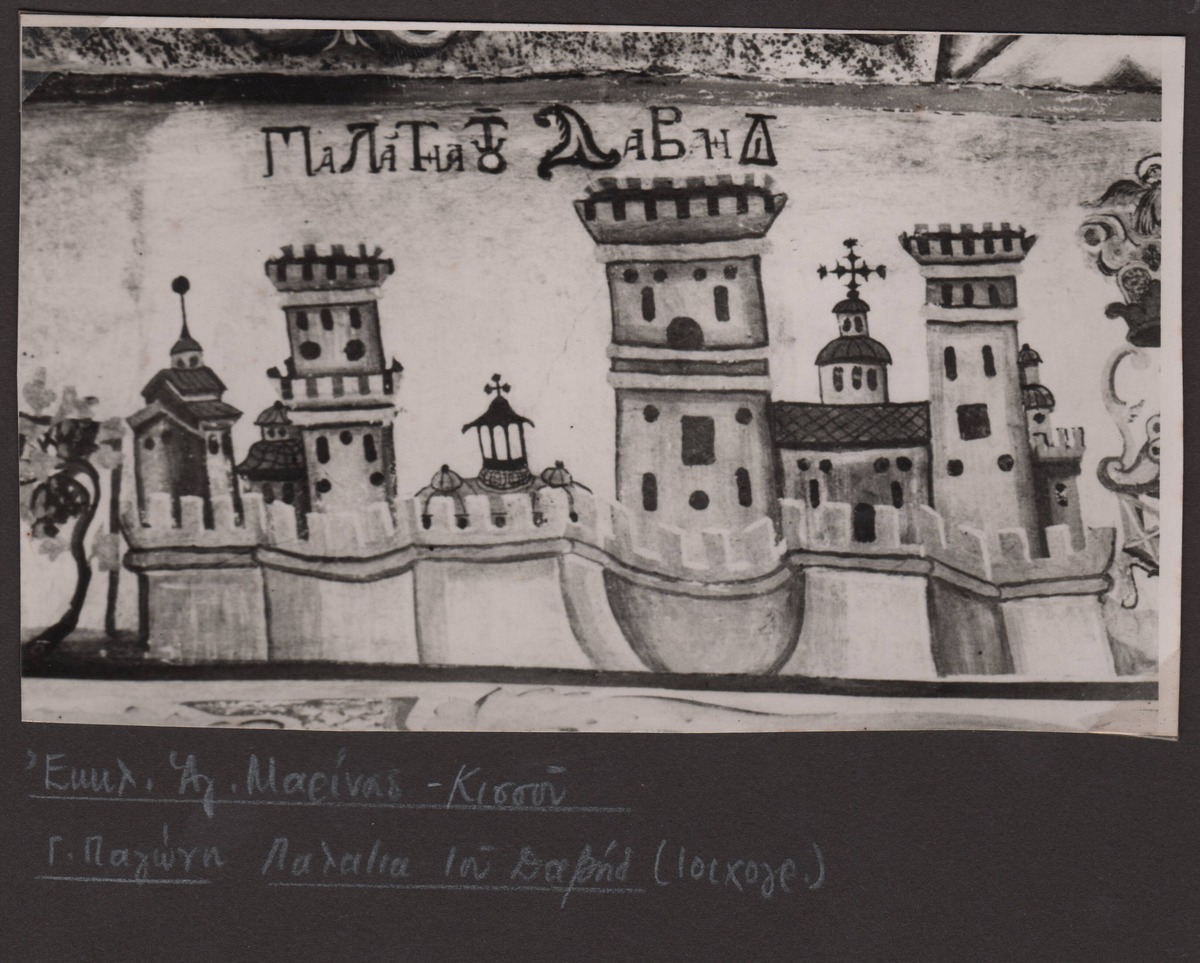 ΠαΛάΤηα τȣ ΔαΒηΔ
Ἐκκλ. Ἁγ. Μαρίνας - Κισσοῦ
Γ. Παγώνη Παλάτια τοῦ Δαβίδ (τοιχογρ.)